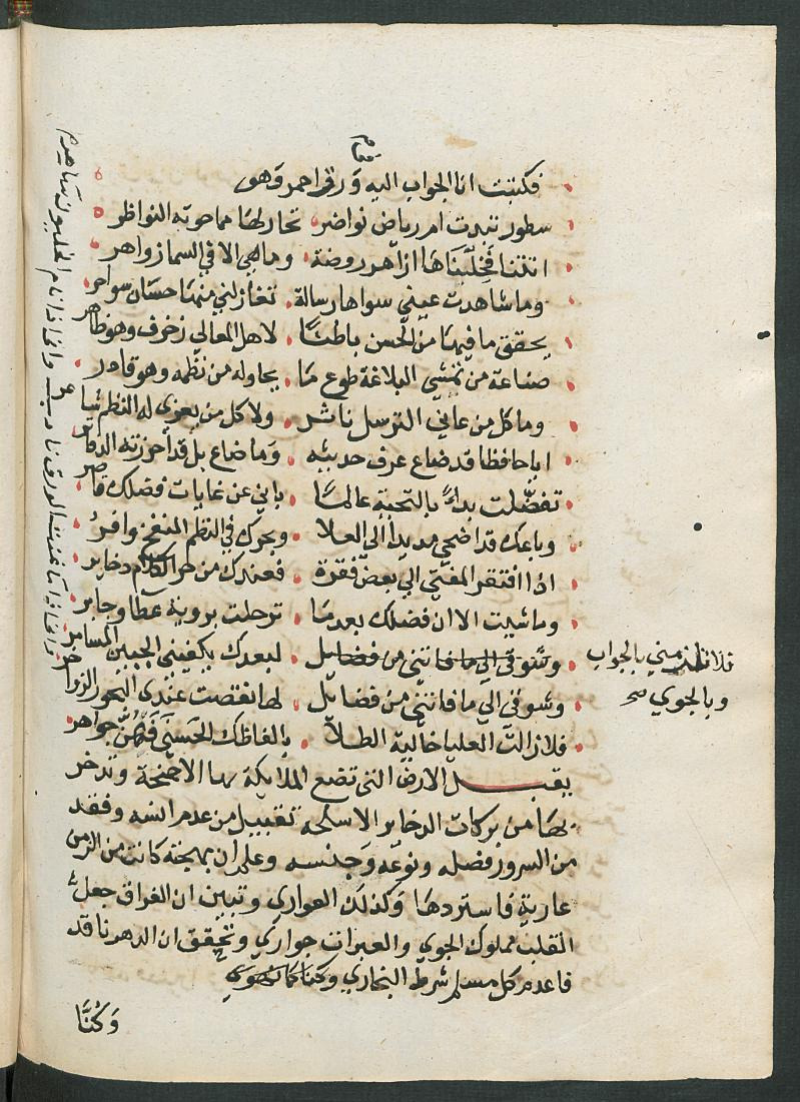 فكتبت انا الجواب اليه في ورق احمر وهو
سطور تبدت ام رياض نواضر تحار لها مما حوته النواظر
اتتنا فخلناها ازاهر روضة وما هي الا في السما زواهر
وما شاهدت عيني سواها رسالة تغازلني منها حسان سواحر
يحقق ما فيها من الحسن باطنا لاهل المعالي زخرف وهو ظاهر
صناعة من تمشي البلاغة طوع ما يحاوله من نظمه وهو قادر
وما كل من عاني الترسل ناشر ولا كل من يعزى له النظم
ايا حافظا قد ضاع عرف حديثه وما ضاع بل قد احرزته الدفاتر
تفضلت بداء بالتحية عالما باني عن غايات فضلك قاصر
وباعك قد اضحى مديدا الى العلا وبحرك في النظم المنقح وافر
اذا افتقر المفتي الى بعض فقرة فعندك من حر الكلام دخاير
وما شيت الا ان فضلك بعدما ترحلت يرويه عطا وجابر
وشوقي الى ما فاتني من فضايل لبعدك يكفيني المسامر
وشوقي الى ما فاتني من فضايل لها نقصت عندي البحور الزواخر
فلا زالت العليا خالية الطلا بالفاظك الحسنى فهن جواهر
يقبل الارض التي تضع الملايكة بها الاجنحة وتدخر
بها من بركات الدخاير الاسلحه تقبيل من عدم انسه وفقد
من السرور فضله ونوعه وجنسه وعلم ان بهجته كانت من الزمن
عارية فاستردها وكذلك العواري وتبين ان الفراق جعل
القلب مملوك الجوي والعبرات جواري وتحقق ان الدهر نا قد
فاعدم كل مسلم شرط البخاري وكنا كما نهوي
وكنا
فلا تظنن مني بالجواب
وبالجوي صح